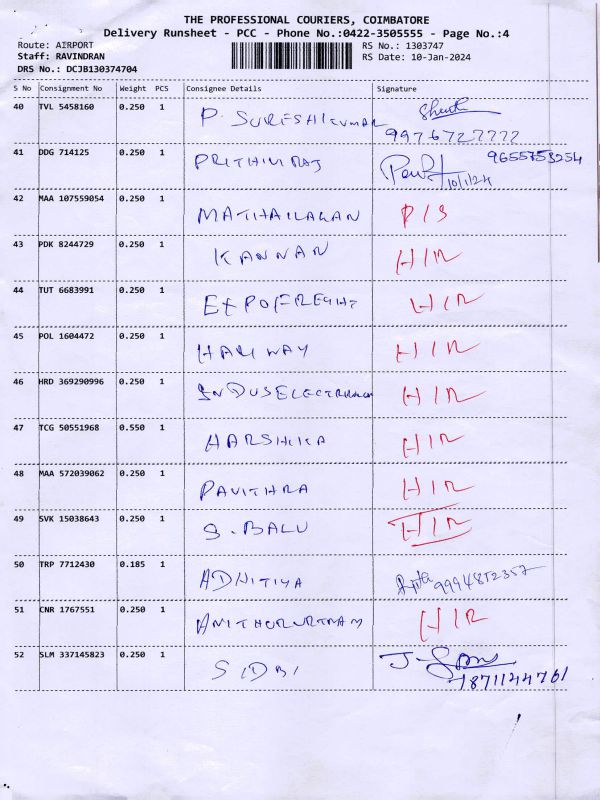 THE PROFESSIONAL COURIERS, COIMBATORE
Delivery Runsheet - PCC - Phone No.:0422-3505555 - Page No.:4
Route: AIRPORT RS No.: 1303747
Staff: RAVINDRAN RS Date: 10-Jan-2024
DRS No.: DCJB130374704
S No Consignment No Weight PCS Consignee Details Signature
40 TVL 5458160 0.250 1 P. SURESHKUMAR
9976727777
41 DDG 714125 0.250 1 PRITHIVIRAJ 9655753254
10/1/24
42 MAA 107559054 0.250 1 MATHAILAGAN P/S
43 PDK 8244729 0.250 1 KANNAN H/R
44 TUT 6683991 0.250 1 EXPOFREGHT H/R
45 POL 1604472 0.250 1 HARIWAY H/R
46 HRD 369290996 0.250 1 INDUSELECTRICAL H/R
47 TCG 50551968 0.550 1 HARSHIKA H/R
48 MAA 572039062 0.250 1 PAVITHRA H/R
49 SVK 15038643 0.250 1 S. BALU H/R
50 TRP 7712430 0.185 1 ADHITIYA 9994852357
51 CNR 1767551 0.250 1 H/R
52 SLM 337145823 0.250 1 SIDBI
7871144761